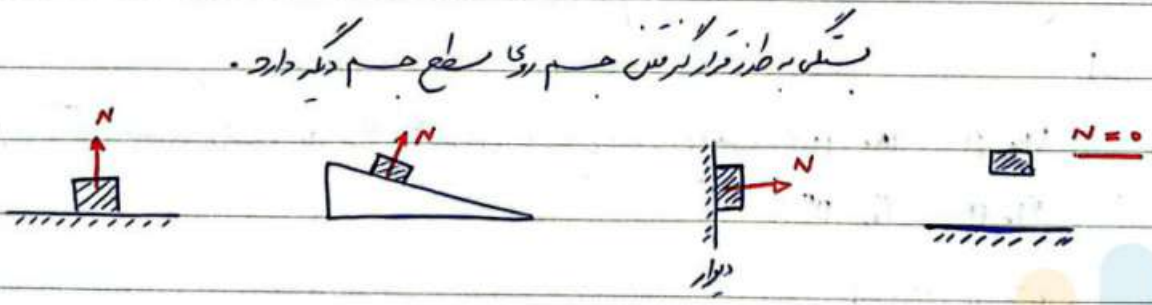 بستگی به طرز قرار گرفتن جسم روی سطح جسم دیگر دارد.
N N N N = 0
دیوار